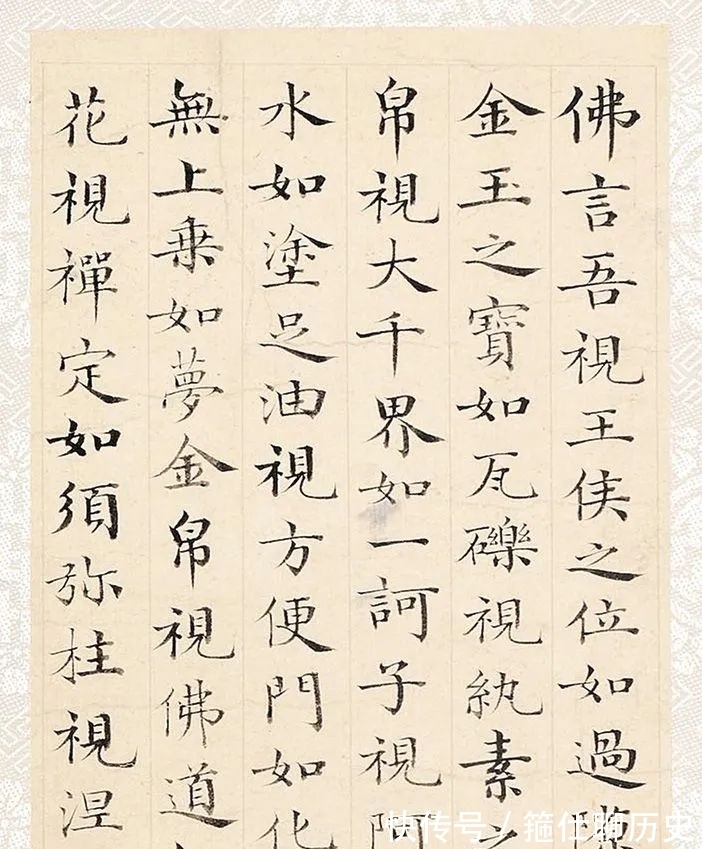 佛言吾視王侯之位如過
金玉之寶如瓦礫視紈素之
帛視大千界如一訶子視阿
水如塗足油視方便門如化
無上乗如夢金帛視佛道
花視禪定如須弥柱視涅
快传号 / 箍仕聊历史